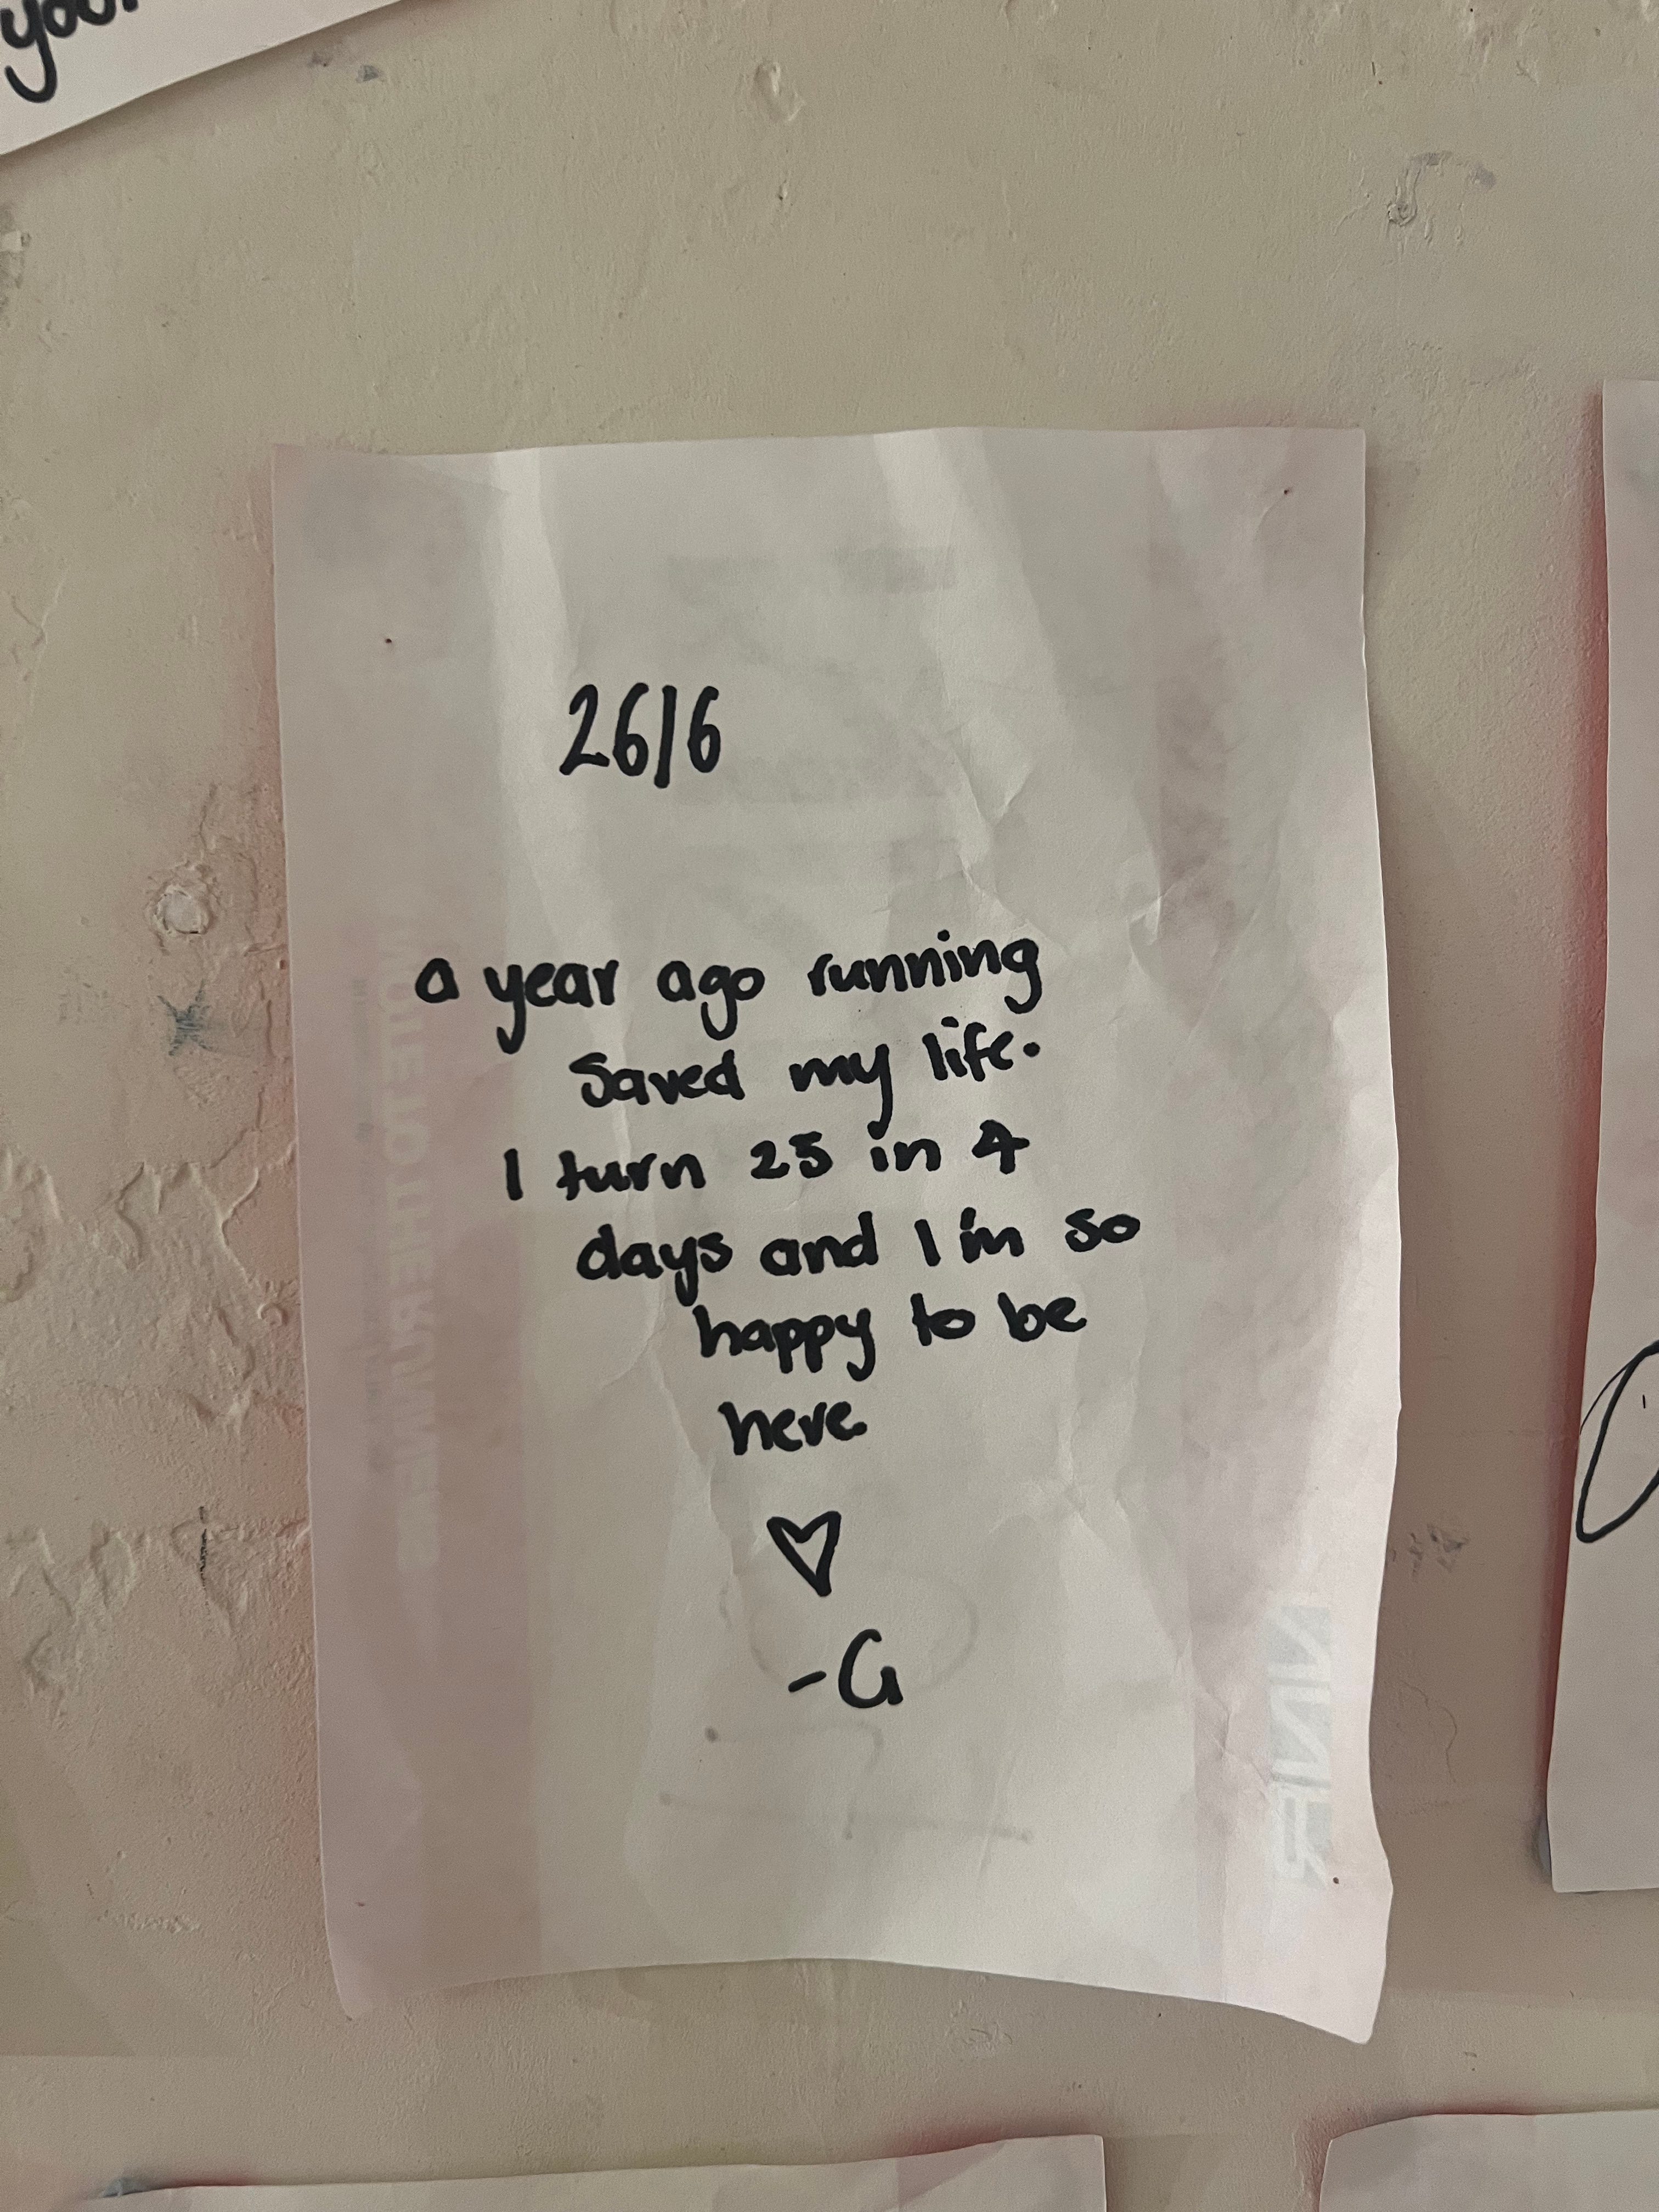 you.
26/6
a year ago running
saved my life.
I turn 25 in 4
days and I'm so
happy to be
here
♡
-G